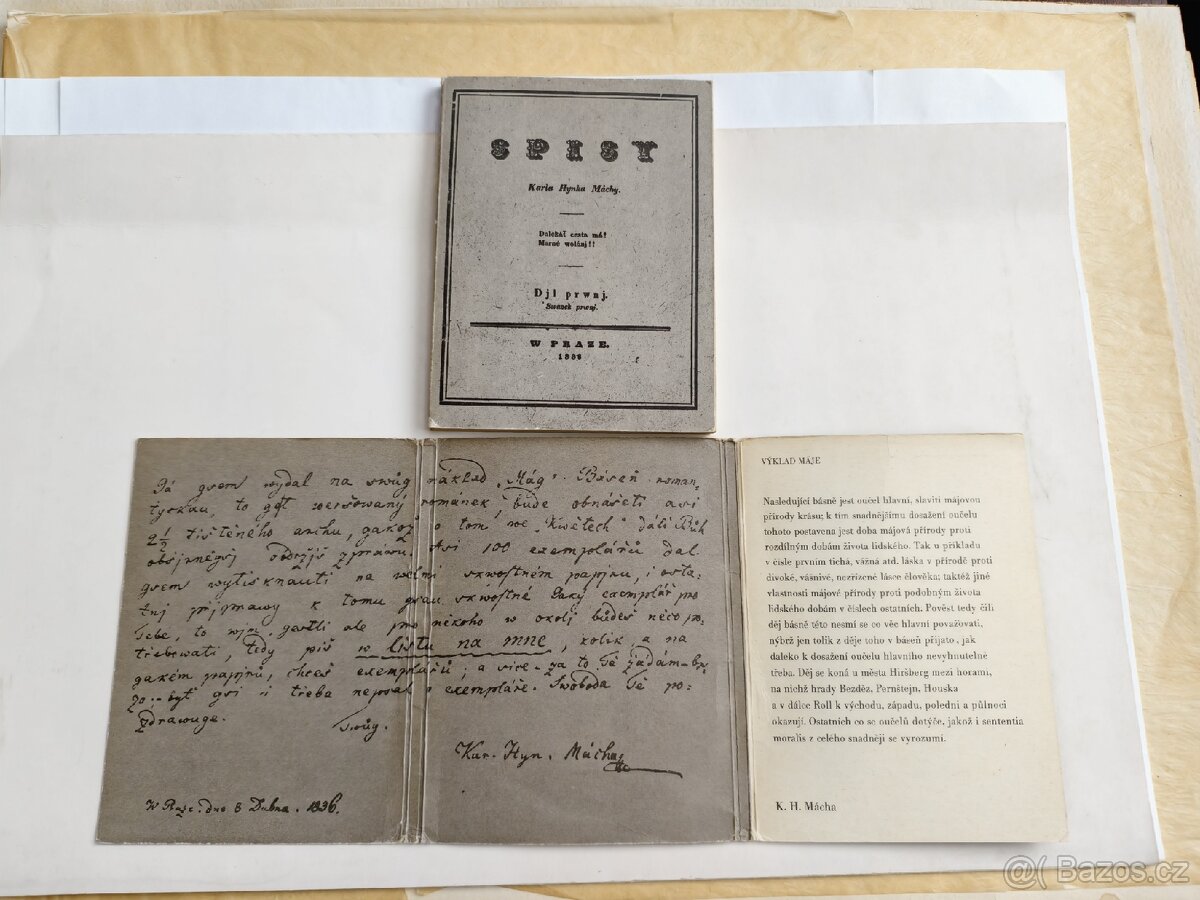 SPISY
Karla Hynka Máchy.
Daleká cesta má!
Marné wolánj!!
Djl prwnj.
Swazek prwnj.
W PRAZE.
1836
Já gsem wydal na swůg náklad „Mág“ Báseň roman-
tyckau, to gest weršowaný románek, bude obnášeti asi
2 1/2 tištěného archu, gakož o tom we „Kwětech“ dáli Bůh
obšjrněgj obdržjš zpráwu. Asi 100 exemplářů dal
gsem wytisknauti na welmi skwostném papjru, i osta-
tnj přjprawy k tomu gsau skwostné. Taky exemplář pro
Tebe, to wjš, gestli ale pro někoho w okolj budeš něco po-
třebowati, tedy piš w listu na mne, kolik, a na
gakém papjru, chceš exemplářů; a vice - za to Tě žádám - br-
zo - byť gsi i třeba nepotř. exempláře. Swoboda Tě po-
zdrawuge.
Twůg.
Kar. Hyn. Mácha
W Praze. dne 8 Dubna. 1836.
VÝKLAD MÁJE
Následující básně jest oučel hlavní, slaviti májovou
přírody krásu; k tím snadnějšímu dosažení oučelu
tohoto postavena jest doba májová přírody proti
rozdílným dobám života lidského. Tak u příkladu
v čísle prvním tichá, vážná atd. láska v přírodě proti
divoké, vásnivé, nezřízené lásce člověka; taktéž jiné
vlastnosti májové přírody proti podobným života
lidského dobám v číslech ostatních. Pověst tedy čili
děj básně této nesmí se co věc hlavní považovati,
nýbrž jen tolik z děje toho v báseň přijato, jak
daleko k dosažení oučelu hlavního nevyhnutelně
třeba. Děj se koná u města Hiršberg mezi horami,
na nichž hrady Bezděz, Pernštejn, Houska
a v dálce Roll k východu, západu, poledni a půlnoci
okazují. Ostatních co se oučelů dotýče, jakož i sententia
moralis z celého snadněji se vyrozumí.
K. H. Mácha
@( Bazos.cz